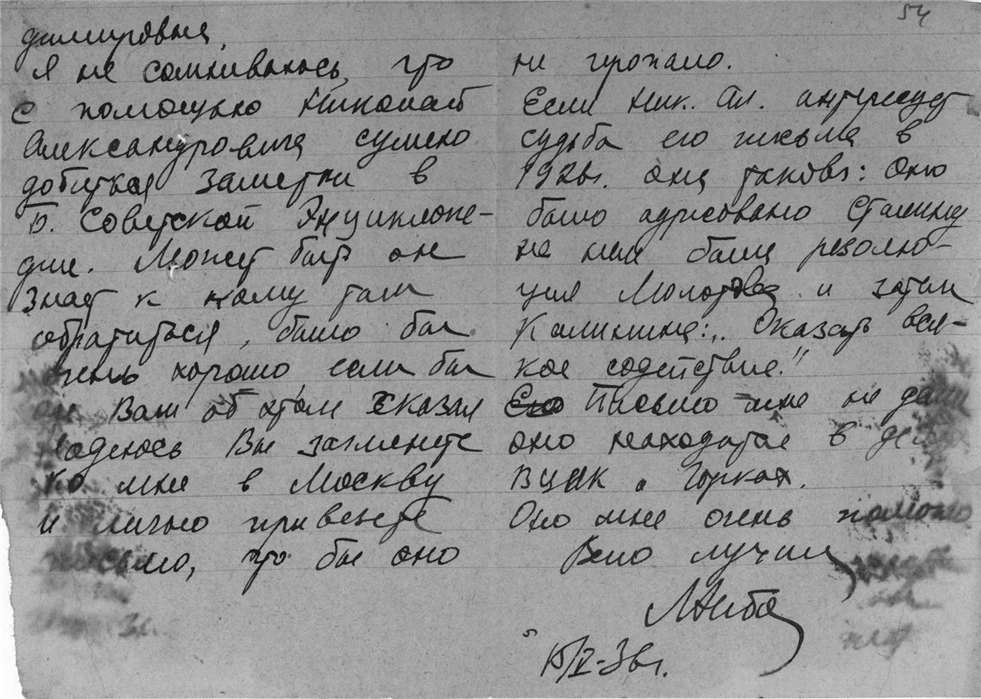 54
димировыч,
Я не сомневаюсь, что
с помощью Николая
Александровича сумею
добиться заметки в
Б. Советской Энциклопе-
дии. Может быть он
знает к кому там
обратиться, было бы
очень хорошо, если бы
он Вам об этом сказал
Надеюсь Вы заглянете
ко мне в Москву
и лично привезете
письмо, что бы оно
не пропало.
Если Ник. Ал. интересует
судьба его письма в
1926г. она такова: Оно
было адресовано Сталину
на нем были резолю-
ция Молотова и затем
Калинина: „Оказать вся-
кое содействие."
Его Письмо мне не дали
оно находится в
ВЦИК о Горках.
Оно мне очень помогло
Всего лучшего
15/V-36г.